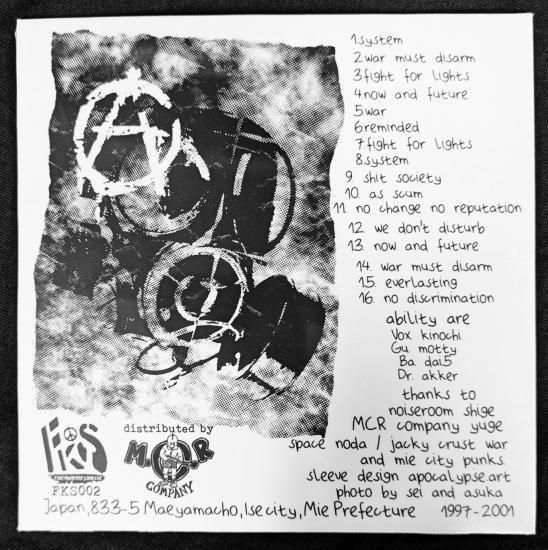 1.system
2.war must disarm
3.fight for lights
4.now and future
5.war
6.reminded
7.fight for lights
8.system
9. shit society
10. as scum
11. no change no reputation
12. we don't disturb
13. now and future
14. war must disarm
15. everlasting
16. no discrimination
ability are
Vox kinochi
Gu motty
Ba dai5
Dr. akker
thanks to
noiseroom shige
MCR company yuge
space noda / jacky crust war
and mie city punks.
sleeve design apocalypse.art
photo by sei and asuka
1997-2001
A
FKS
FKS002
distributed by
M.C.R
COMPANY
Japan,833-5 Maeyamacho,Ise city,Mie Prefecture